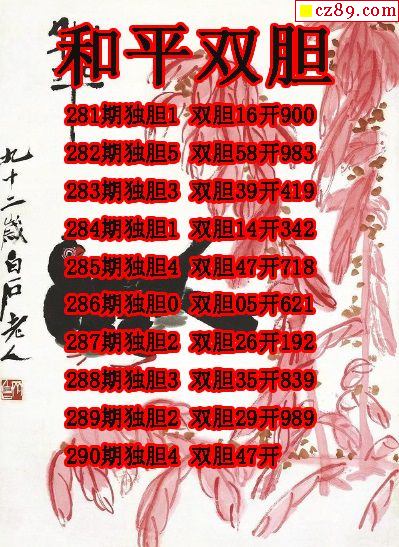 cz89.com
和平双胆
281期独胆1 双胆16开900
282期独胆5 双胆58开983
283期独胆3 双胆39开419
284期独胆1 双胆14开342
285期独胆4 双胆47开718
286期独胆0 双胆05开621
287期独胆2 双胆26开192
288期独胆3 双胆35开839
289期独胆2 双胆29开989
290期独胆4 双胆47开
九十二岁白石老人